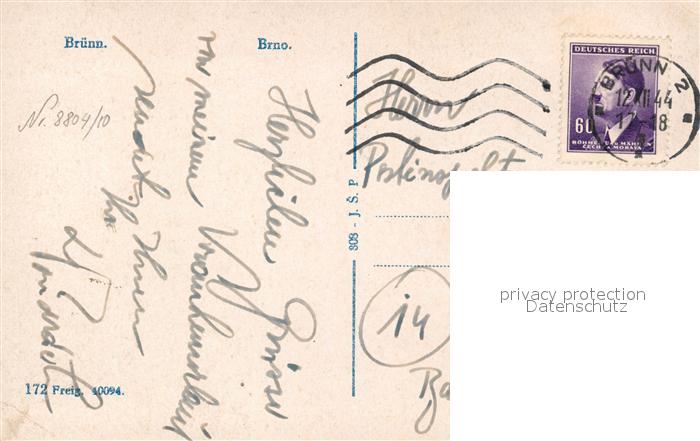 Brünn.
Brno.
Nr. 8804/10
Herzlichen Grüsse
von meinem
sendet Ihnen
Ihr
172 Freig. 40094.
808 - J. Š. P.
DEUTSCHES REICH
60
BÖHMEN UND MÄHREN
ČECHY A MORAVA
BRÜNN 2
12.XII.44
-18
Herrn
Postinspekt
14
privacy protection
Datenschutz